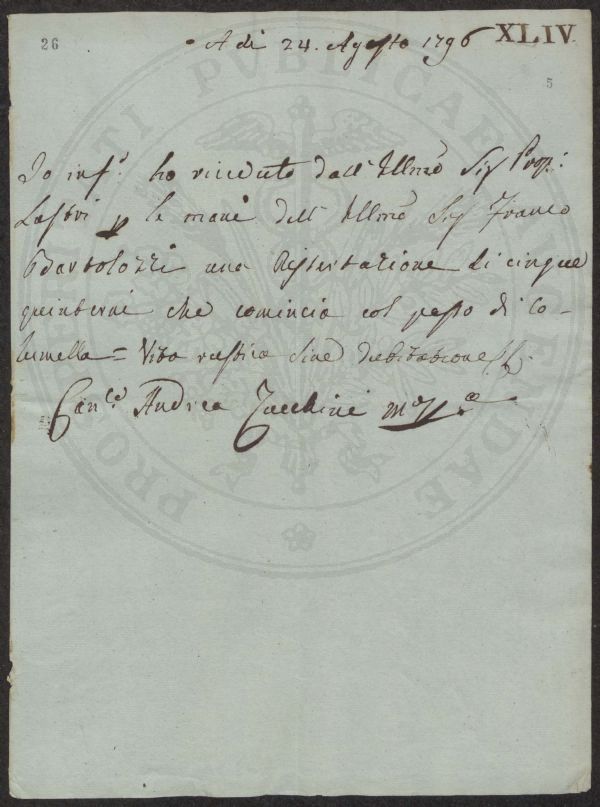 26
A di 24. Agosto 1796
XLIV
5
Io inf.o ho ricevuto dall' Illmo Sig Prop:
Lastri p le mani dell' Illmo Sig Franco
Bartolozzi una Dissertazione di cinque
quinterni che comincia col passo di Co-
lumella = Vita rustica sine dubitatione
Can.co Andrea Zucchini
PROSPERITATI PVBLICAE AVGENDAE